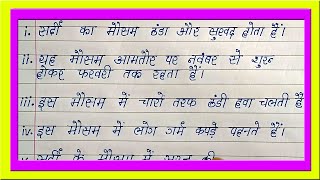 i. सर्दी का मौसम ठंडा और सुखद होता हैं।
ii. यह मौसम आमतौर पर नवंबर से शुरू
होकर फरवरी तक रहता हैं।
iii. इस मौसम में चारों तरफ ठंडी हवा चलती हैं
iv. इस मौसम में लोग गर्म कपड़े पहनते हैं।